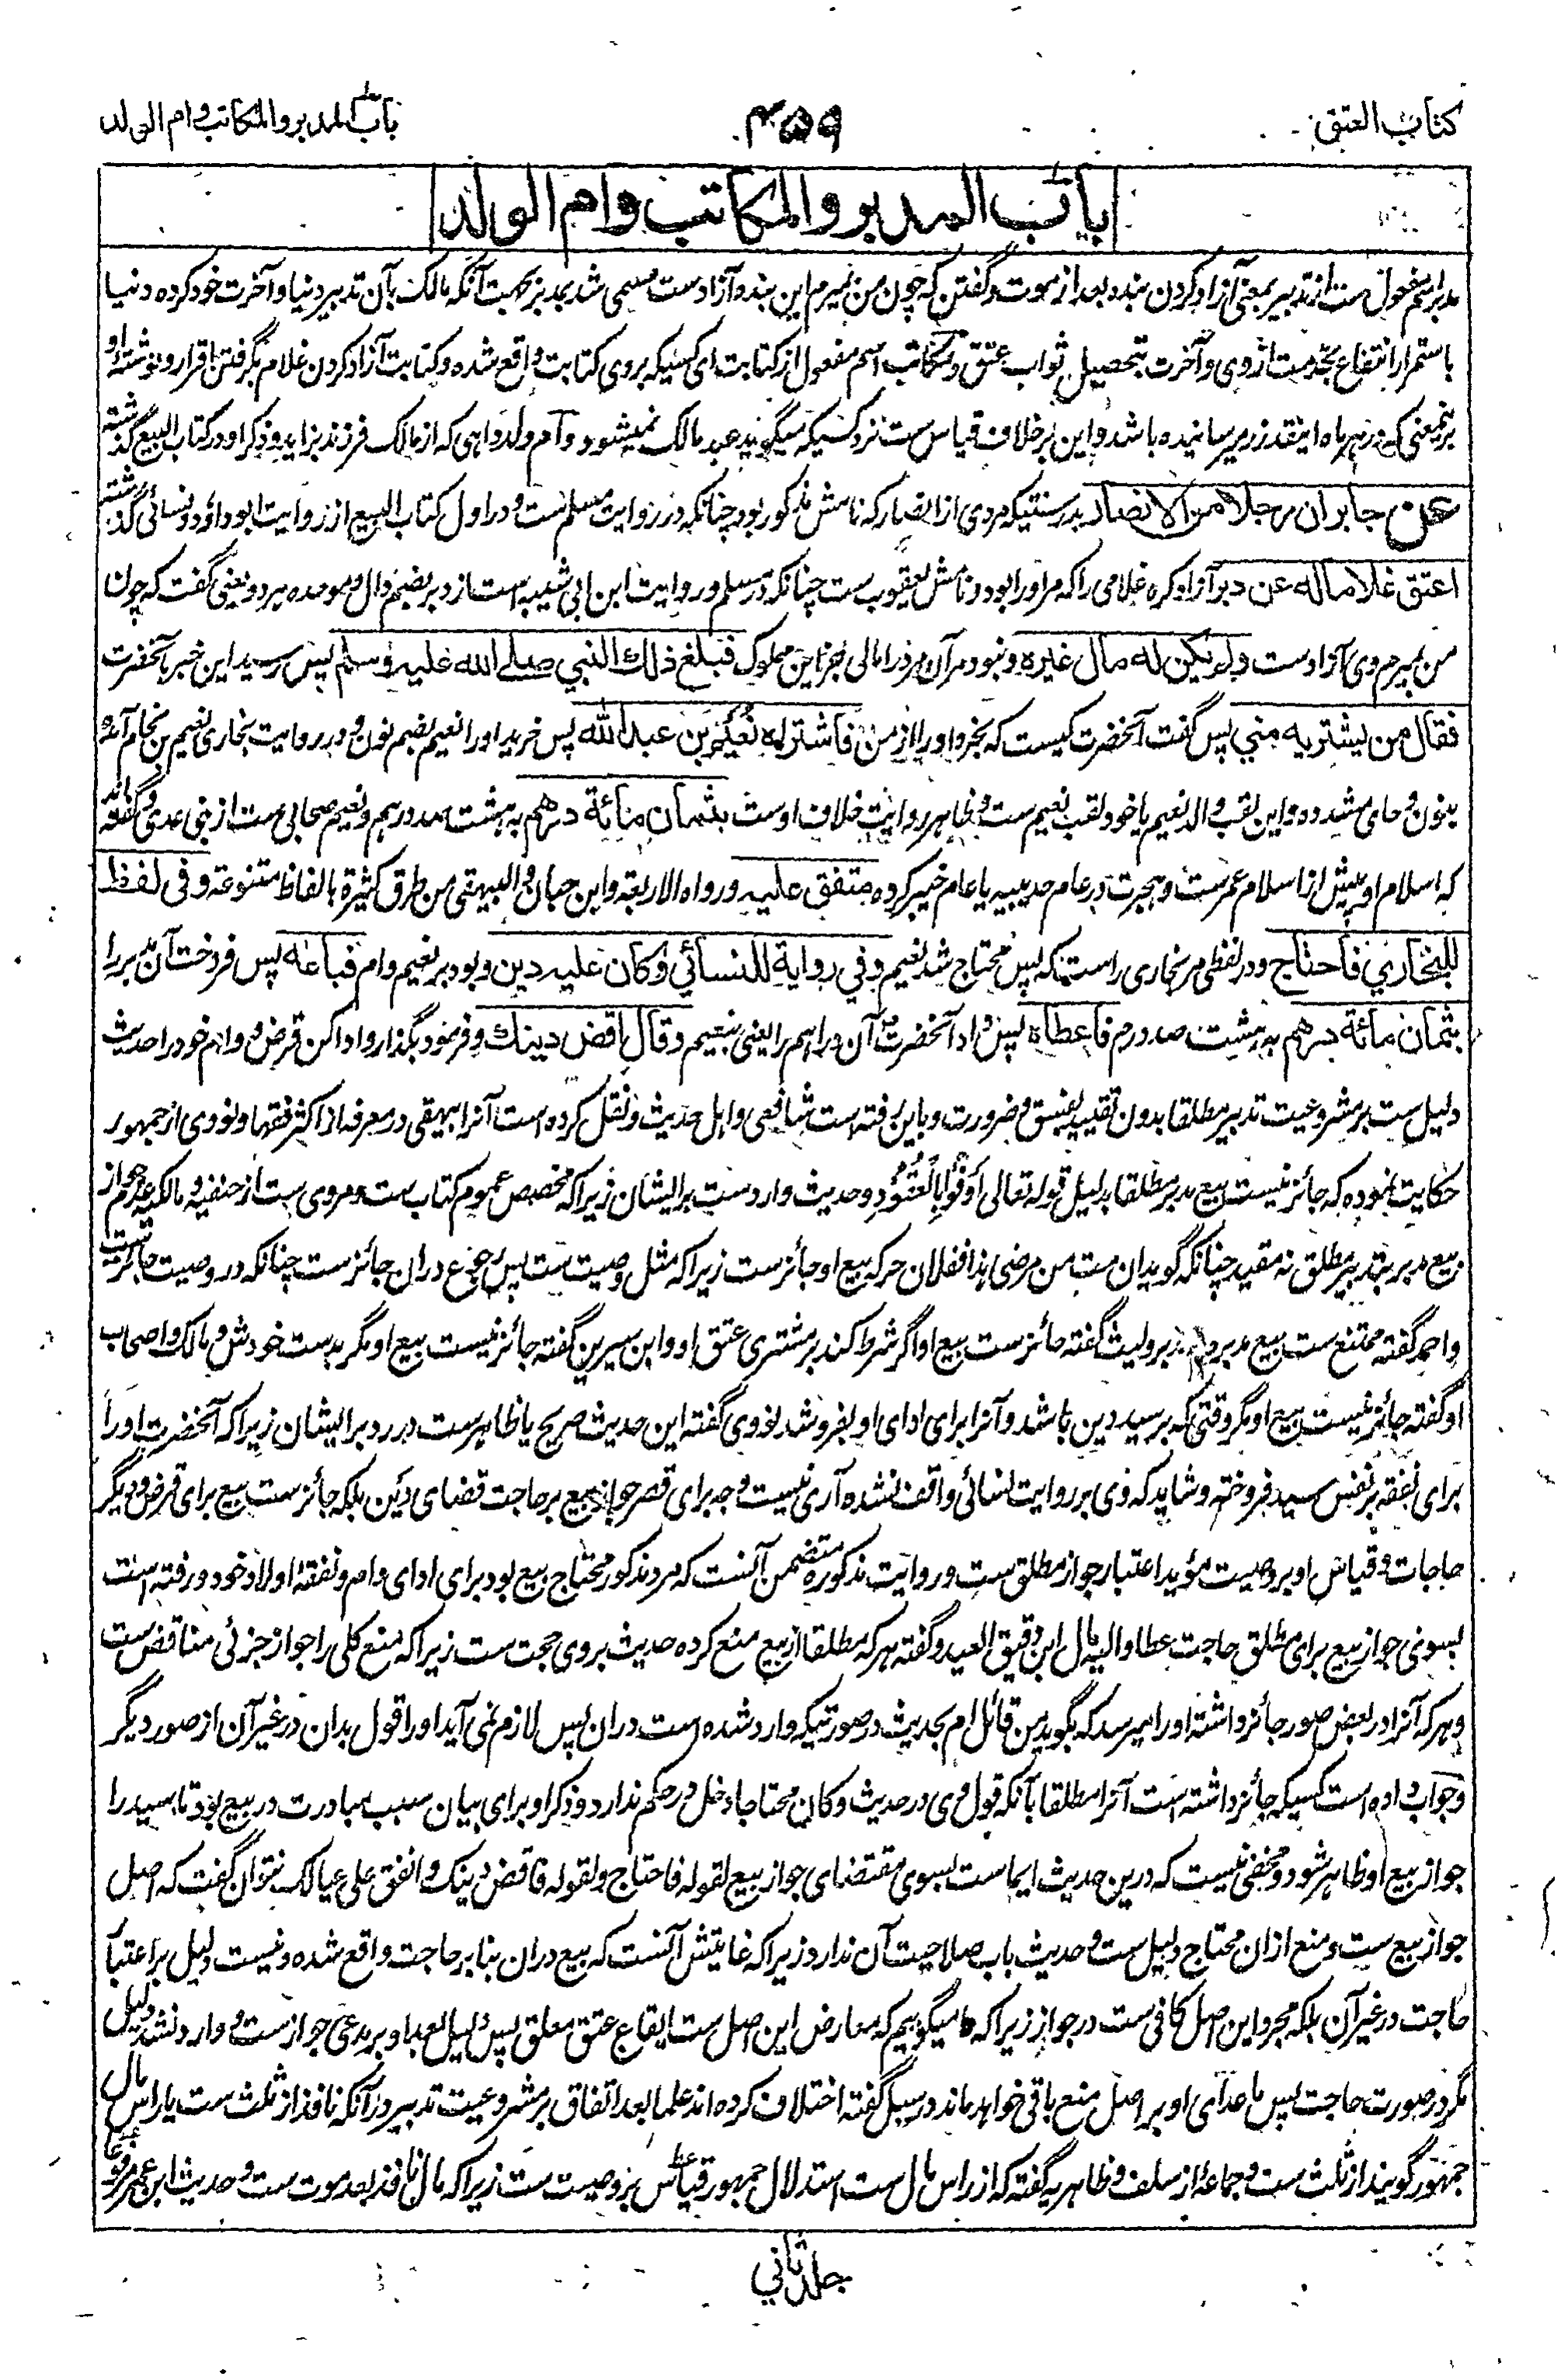 کتاب العتق
۴۵۹
باب المدبر والمکاتب وام الولد
باب المدبر والمکاتب وام الولد
مدبر اسم مفعول ست از تدبیر بمعنی آزاد کردن بنده بعد از موت و گفتن که چون من بمیرم این بنده آزادست مسمی شد بمدبر بجهت آنکه مالک بآن تدبیر دنیا و آخرت خود کرده دنیا
باستمرار انتفاع بخدمت از وی و آخرت بتحصیل ثواب عتق و مکاتب اسم مفعول از کتابت ای کسیکه بروی کتابت واقع شده و کتابت آزاد کردن غلام بگرفتن اقرار و نوشته او
برینمعنی که در هر ماه اینقدر زر میرسانیده باشد و این بر خلاف قیاس ست نزد کسیکه میگوید عبد مالک نمیشود و ام ولد داهی که از مالک فرزند بزاید و ذکر او در کتاب البیع گذشته
عن جابر ان رجلا من الانصار بدرستیکه مردی از انصار که نامش مذکور بود چنانکه در روایت مسلم ست و در اول کتاب البیع از روایت ابوداؤد و نسائی گذشته
اعتق غلاما له عن دبر آزاد کرد غلامی را که مر او را بود و نامش یعقوب ست چنانکه در مسلم و روایت ابن ابی شیبه است از دبر بضم دال و موحده هردو یعنی گفت که چون
من بمیرم وی آزادست ولم یکن له مال غیره و نبود مر آن مرد را مالی جز این مملوک فبلغ ذلك النبی صلے الله علیه وسلم پس رسید این خبر بآنحضرت
فقال من یشتریه منی پس گفت آنحضرت کیست که بخرد او را از من فاشتراه نُعَیم بن عبد الله پس خرید او را نعیم بضم نون و در روایت بخاری نعیم بن نحام آمده
بنون و حای مشدده و این لقب والد نعیم یا خود لقب نعیم ست و ظاهر روایت خلاف اوست بثمان مائة درهم به هشت صد درهم و نعیم صحابی ست از بنی عدی و گفته اند
که اسلام او پیش از اسلام عمرست و هجرت در عام حدیبیه یا عام خیبر کرده متفق علیه و رواه الاربعة و ابن حبان و البیهقی من طرق کثیرة بالفاظ متنوعة وفی لفظ
للبخاری فاحتاج و در لفظی مر بخاری راست که پس محتاج شد نعیم وفی روایة للنسائی وکان علیه دین و بود بر نعیم وام فباعه پس فروخت آن مدبر را
بثمان مائة درهم به هشت صد درم فاعطاه پس داد آنحضرت آن دراهم را یعنی بنعیم وقال اقض دینك و فرمود بگذار و ادا کن قرض و وام خود را حدیث
دلیل ست بر مشروعیت تدبیر مطلقا بدون تقیید بفسق و ضرورت و باین رفته است شافعی و اهل حدیث و نقل کرده است آنرا بیهقی در معرفه از اکثر فقها و نووی از جمهور
حکایت نموده که جائز نیست بیع مدبر مطلقا بدلیل قوله تعالی اَوْفُوا بِالْعُقُودِ و حدیث واردست بر ایشان زیرا که مخصص عموم کتاب ست و مروی ست از حنفیه و مالکیه عدم جواز
بیع مدبر بتدبیر مطلق نه مقید چنانکه گوید ان مت من مرضی هذا ففلان حر که بیع او جائزست زیرا که مثل وصیت ست پس رجوع دران جائزست چنانکه در وصیت جائزست
و احمد گفته ممتنع ست بیع مدبره نه مدبر و لیث گفته جائزست بیع او اگر شرط کند بر مشتری عتق او و ابن سیرین گفته جائز نیست بیع او مگر بدست خودش و مالک و اصحاب
او گفته جائز نیست بیع او مگر وقتی که بر سید دین باشد و آنرا برای ادای او بفروشد نووی گفته این حدیث صریح یا ظاهرست در رد بر ایشان زیرا که آنحضرت او را
برای نفقه بر نفس سید فروخته و شاید که وی بر روایت نسائی واقف نشده آری نیست وجه برای قصر جواز بیع بر حاجت قضای دَین بلکه جائزست بیع برای قرض و دیگر
حاجات و قیاس او بر وصیت مؤید اعتبار جواز مطلق ست و روایت مذکوره متضمن آنست که مرد مذکور محتاج بیع بود برای ادای وام و نفقهٔ اولاد خود و رفته است
بسوی جواز بیع برای مطلق حاجت عطا و الیه مال ابن دقیق العید و گفته هر که مطلقا از بیع منع کرده حدیث بروی حجت ست زیرا که منع کلی را جواز جزئی مناقض ست
و هر که آنرا در بعض صور جائز داشته او را میرسد که بگوید من قائل ام بحدیث در صورتیکه وارد شده است دران پس لازم نمی آید او را قول بدان در غیر آن از صور دیگر
و جواب داده است کسیکه جائز داشته است آنرا مطلقا بآنکه قول وی در حدیث و کان محتاجا دخل در حکم ندارد و ذکر او برای بیان سبب مبادرت در بیع بود تا سید را
جواز بیع او ظاهر شود و مخفی نیست که درین حدیث ایماست بسوی مقتضای جواز بیع لقوله فاحتاج و لقوله فاقض دینک و انفق علی عیالک نتوان گفت که اصل
جواز بیع ست و منع ازان محتاج دلیل ست و حدیث باب صلاحیت آن ندارد زیرا که غایتش آنست که بیع دران بنا بر حاجت واقع شده و نیست دلیل بر اعتبار
حاجت در غیر آن بلکه مجرد این اصل کافی ست در جواز زیرا که ما میگوییم که معارض این اصل ست ایقاع عتق معلق پس دلیل بعد او بر مدعی جوازست و وارد نشد دلیل
مگر در صورت حاجت پس ماعدای او بر اصل منع باقی خواهد ماند در سبل گفته اختلاف کرده اند علما بعد اتفاق بر مشروعیت تدبیر در آنکه نافذ از ثلث ست یا راس مال
جمهور گویند از ثلث ست و جماعهٔ از سلف و ظاهریه گفته که از راس مال ست استدلال جمهور قیاس بر وصیت ست زیرا که مال نافذ بعد موت ست و حدیث ابن عمر مرفوعا
جلد ثانی